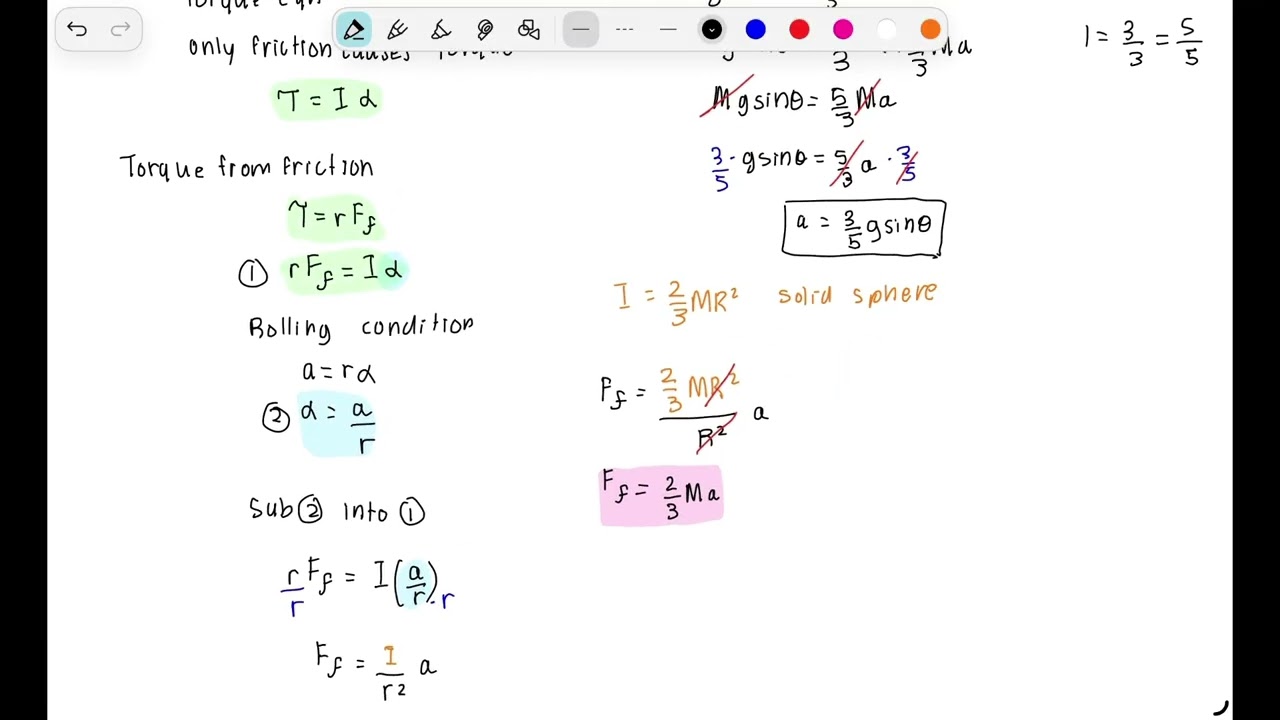 only friction causes Torque
τ = I α
Torque from friction
τ = r F_f
① r F_f = I α
Rolling condition
a = r α
② α = a/r
Sub ② into ①
r/r F_f = I (a/r) · r
F_f = I/r² a
Ma
Mg sinθ = 5/3 Ma
3/5 · g sinθ = 5/3 a · 3/5
a = 3/5 g sinθ
I = 2/3 MR² solid sphere
F_f = 2/3 MR² / R² a
F_f = 2/3 Ma
1 = 3/3 = 5/5